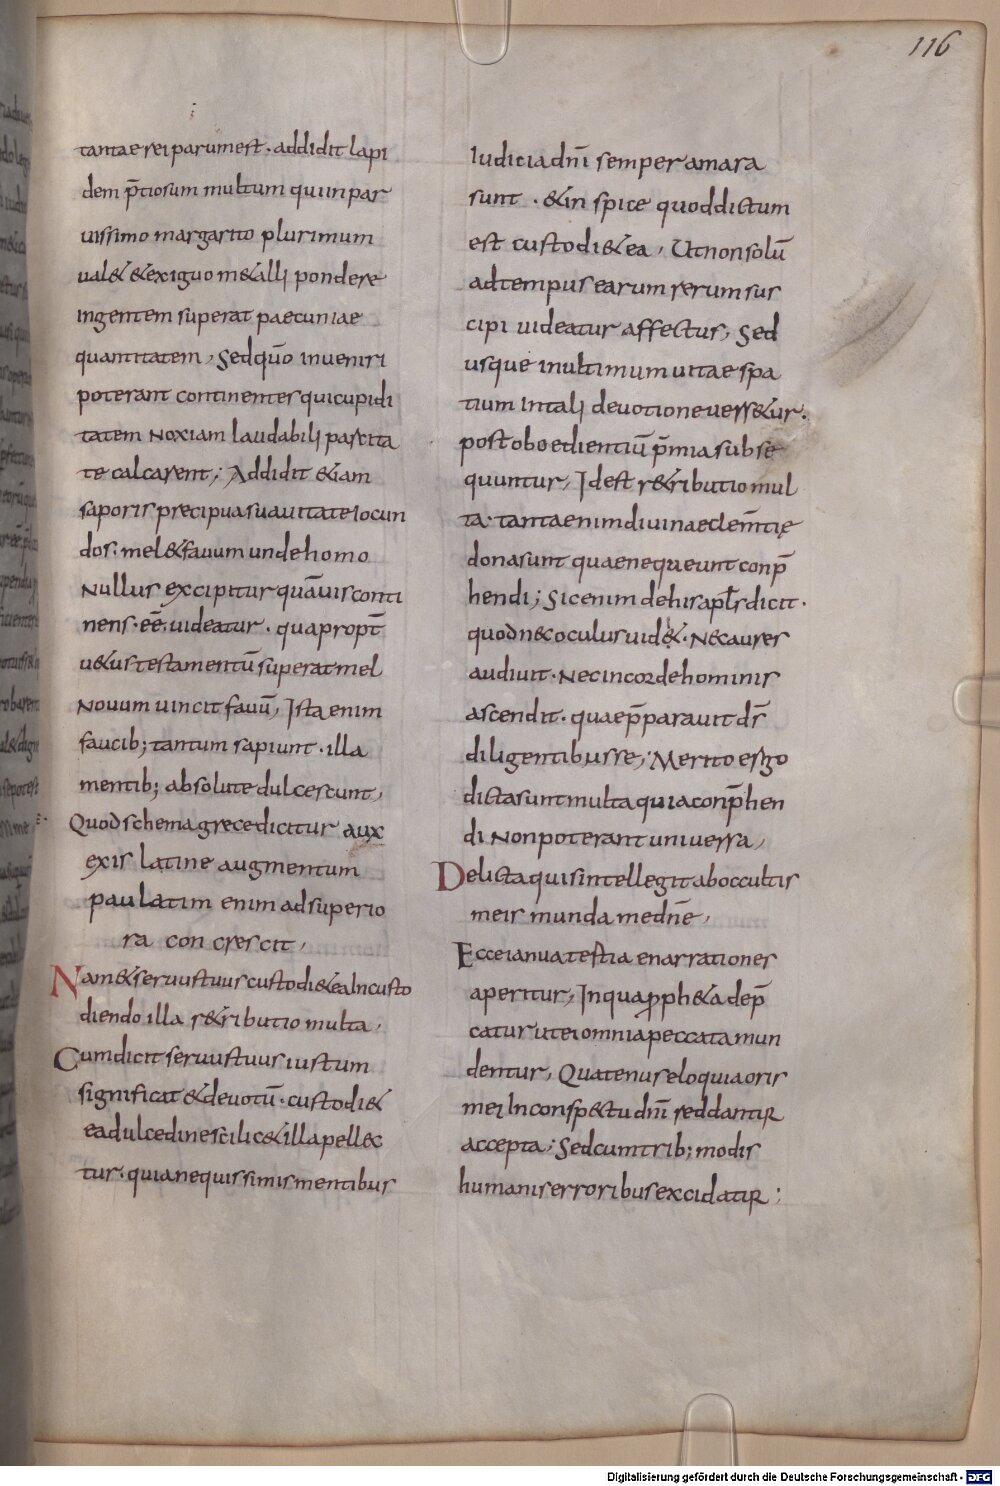 116
tantae rei parum est · addidit lapi
dem p̄tiosum multum qui in par
uissimo margarito plurimum
ual& & exiguo m&alli pondere
ingentem superat paecuniae
quantitatem, Sed quō inueniri
poterant continentes qui cupidi
tatem noxiam laudabili parcita
te calcarent; Addidit &iam
saporis precipua suauitate iocun
dos. mel & fauum unde homo
Nullus excipitur quāuis conti
nens · eē · uideatur · quapropt̄
u&us testamentū superat mel
Nouum uincit fauū, Ista enim
faucib; tantum sapiunt · illa
mentib; absolute dulcescunt,
Quod schema grece dicitur aux
exis latine augmentum
paulatim enim ad superio
ra con crescit,
Nam & seruus tuus custodi& ea In custo
diendo illa r&ributio multa,
Cum dicit seruus tuus iustum
significat & deuotū · custodi&
ea dulcedine scilic& illa pellec
tur · quia nequissimis mentibus
Iudicia dn̄i semper amara
sunt · & in spice quod dictum
est custodi& ea, Ut non solū
ad tempus earum rerum sus
cipi uideatur affectus, Sed
usque in ultimum uitae spa
tium In tali deuotione uers&ur.
post oboedientiū p̄mia subse
quuntur, Id est r&ributio mul
ta · tanta enim diuinae clem̄tię
dona sunt quae nequeunt conp̄
hendi; Sic enim de his apłs dicit ·
quod nec oculus uid& · Nec aures
audiuit · Nec in cor de hominis
ascendit · quae p̄parauit d̄s
diligentibus se; Merito ergo
dicta sunt multa quia conp̄hen
di Non poterant uniuersa,
Delicta quis intellegit ab occultis
meis munda me dn̄e,
Ecce ianua testia enarrationes
aperitur, In qua p̱ph&a dep̄
catur ut ei omnia peccata mun
dentur, Quatenus eloquia oris
mei In consp&tu dn̄i reddantur
accepta; Sed cum trib; modis
humanis erroribus excidatur;
Digitalisierung gefördert durch die Deutsche Forschungsgemeinschaft - DFG